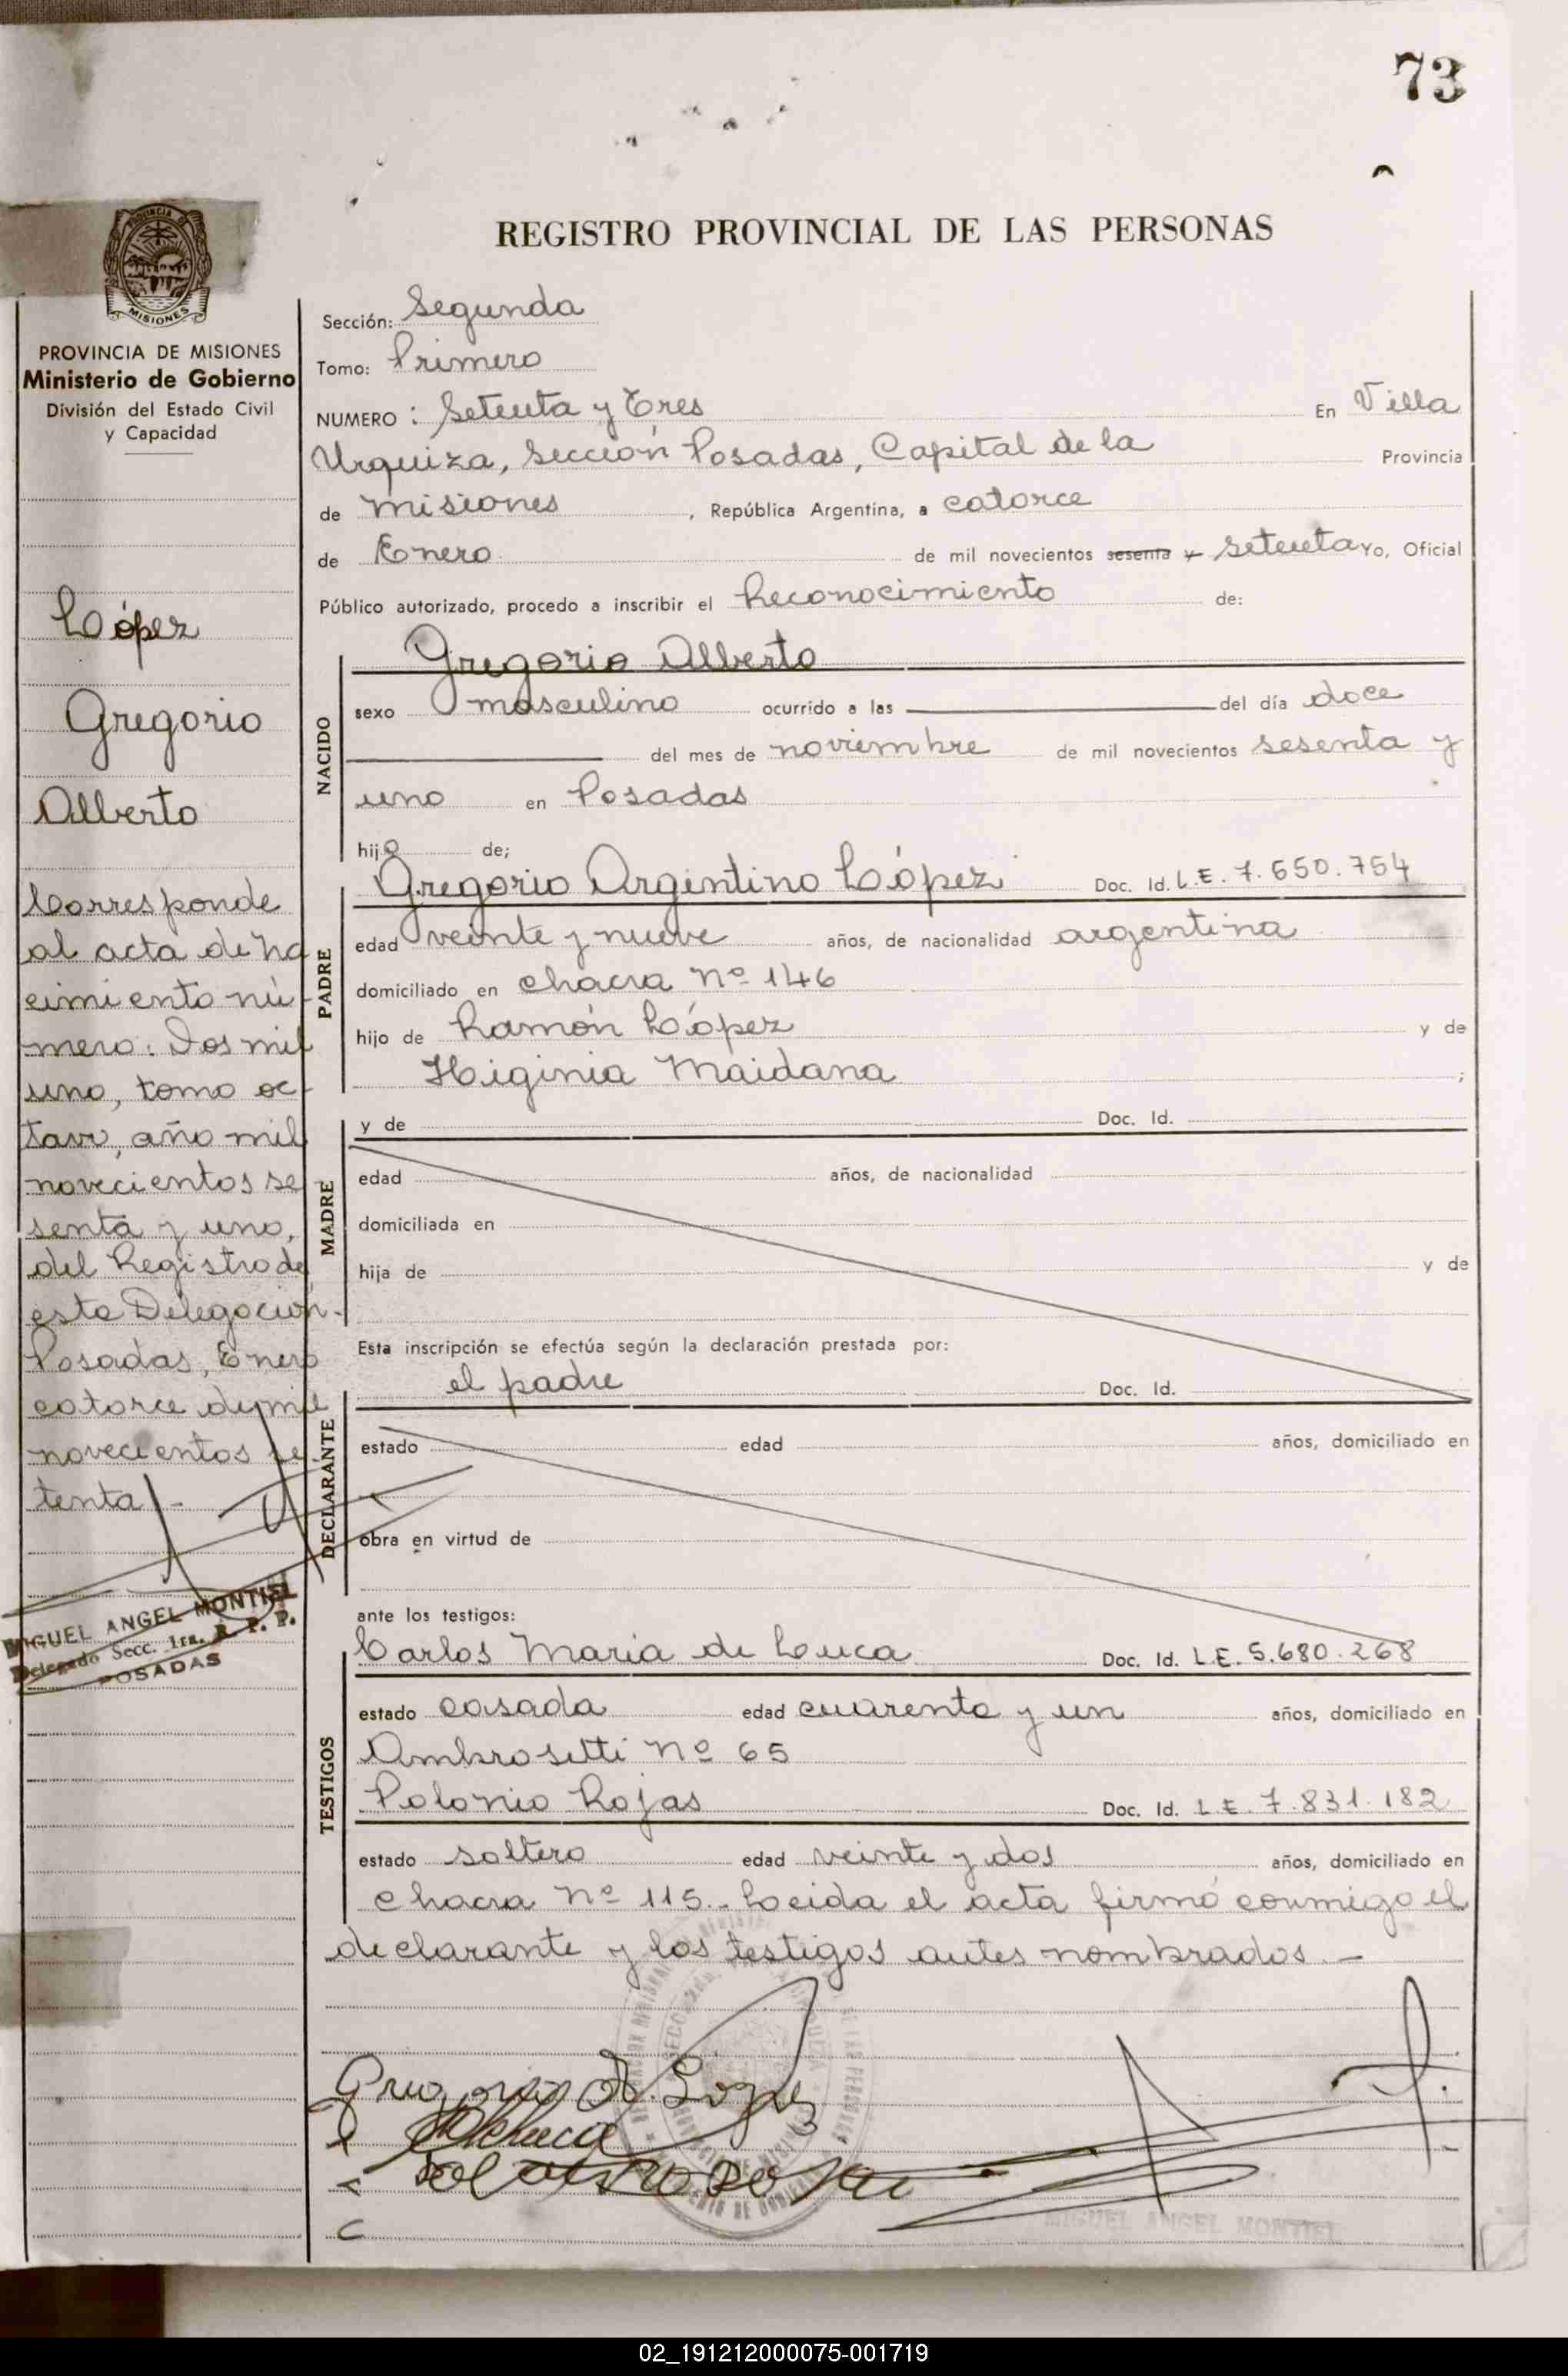 73
REGISTRO PROVINCIAL DE LAS PERSONAS
PROVINCIA DE MISIONES
PROVINCIA DE MISIONES
Ministerio de Gobierno
División del Estado Civil
y Capacidad
López
Gregorio
Alberto
Corresponde
al acta de na
cimiento nú-
mero: Dos mil
uno, tomo oc-
tavo, año mil
novecientos se
senta y uno,
del Registro de
esta Delegación.-
Posadas, Enero
catorce de mil
novecientos se
tenta.-
MIGUEL ANGEL MONTIEL
Delegado Secc. 1ra. R. P. P.
POSADAS
Sección: Segunda
Tomo: Primero
NUMERO: Setenta y Tres En Villa
Urquiza, Sección Posadas, Capital de la Provincia
de Misiones, República Argentina, a catorce
de Enero de mil novecientos sesenta y setenta Yo, Oficial
Público autorizado, procedo a inscribir el Reconocimiento de:
NACIDO
Gregorio Alberto
sexo masculino ocurrido a las del día doce
del mes de noviembre de mil novecientos sesenta y
uno en Posadas
hijo de;
PADRE
Gregorio Argentino López Doc. Id. L.E. 7.550.754
edad veinte y nueve años, de nacionalidad argentina
domiciliado en chacra Nº 146
hijo de Ramón López y de
Higinia Maidana ;
MADRE
y de Doc. Id.
edad años, de nacionalidad
domiciliada en
hija de y de
Esta inscripción se efectúa según la declaración prestada por:
DECLARANTE
el padre Doc. Id.
estado edad años, domiciliado en
obra en virtud de
ante los testigos:
TESTIGOS
Carlos Maria de Luca Doc. Id. L.E. 5.680.268
estado casada edad cuarenta y un años, domiciliado en
Ambrosetti Nº 65
Polonio Rojas Doc. Id. L.E. 7.831.182
estado soltero edad veinte y dos años, domiciliado en
chacra Nº 115.- Leida el acta firmó conmigo el
declarante y los testigos antes nombrados.-
Gregorio A. López
MIGUEL ANGEL MONTIEL
02_191212000075-001719